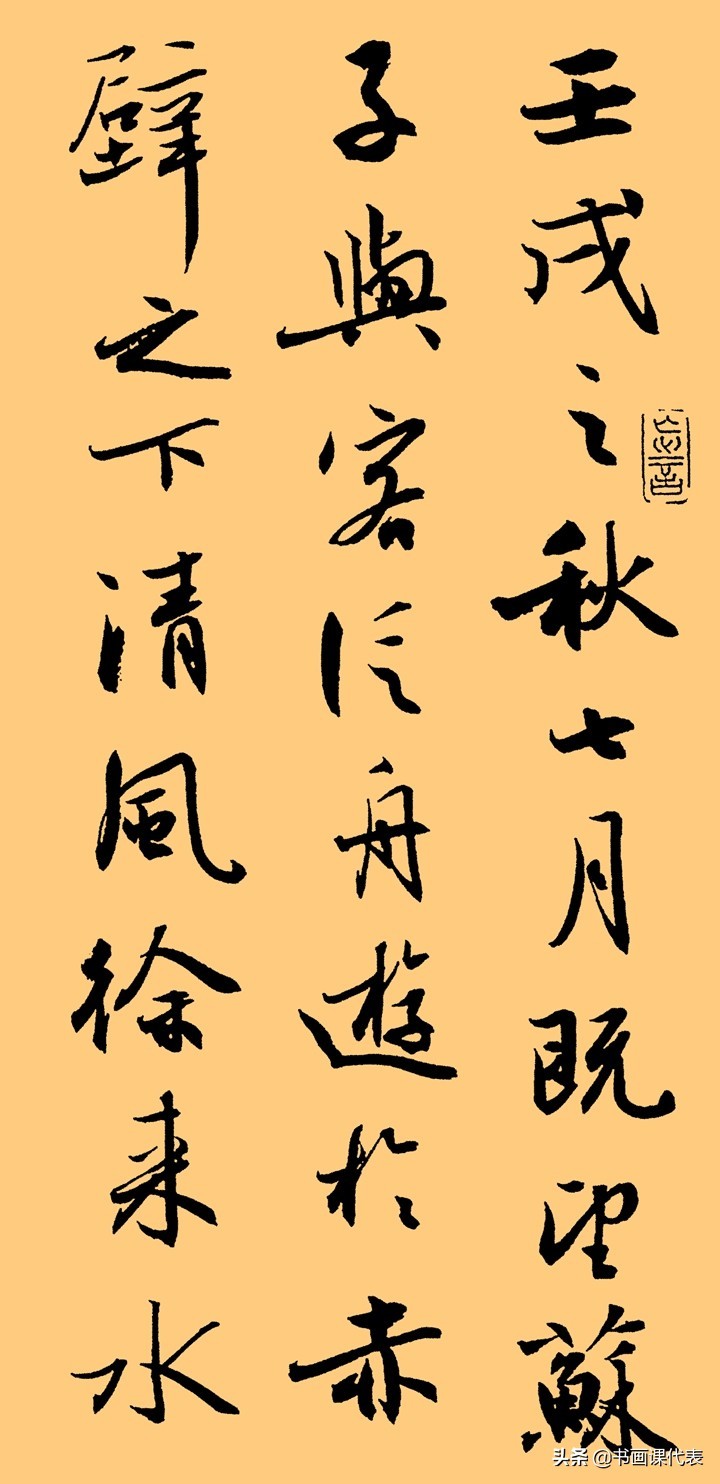 壬戌之秋七月既望蘇
子與客泛舟遊於赤
壁之下清風徐来水
头条 @书画课代表